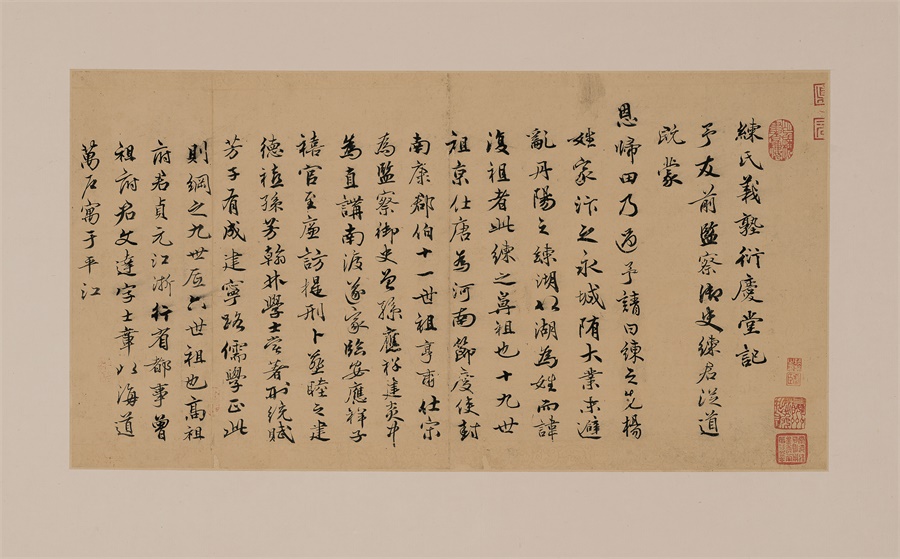 練氏義塾衍慶堂記
予友前監察御史練君從道
既蒙
恩歸田乃過予請曰練之先楊
姓家汴之永城隋大業末避
亂丹陽之練湖以湖為姓而諱
復祖者此練之尊祖也十九世
祖京仕唐為河南節度使封
南康郡伯十一世祖亨甫仕宋
為監察御史曾孫應祥建炎中
為直講南渡遂家臨安應祥子
禧官至廉訪提刑卜葬睦之建
德禧孫芳翰林學士嘗著刑統賦
芳子有成建寧路儒學正此
則綱之九世八世祖也高祖
府君貞元江浙行省都事曾
祖府君文達字士章以海道
萬石寓于平江